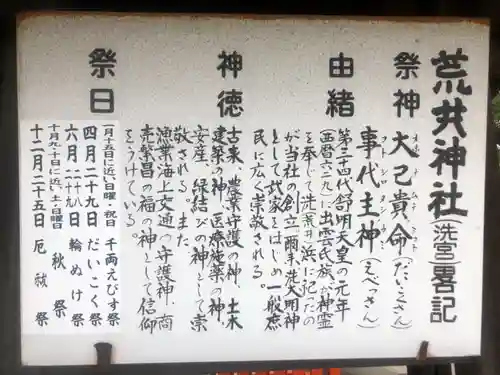 荒井神社(洗宮)畧記
祭神 大己貴命(だいこくさん)
事代主神(えべっさん)
由緒 第三十四代舒明天皇の元年
(西暦六二九)に出雲氏族が神霊
を奉じて洗(荒井)浜に祀ったの
が当社の創立。爾来、洗大明神
として武家をはじめ一般庶
民に広く崇敬される。
神徳 古来、農業守護の神、土木
建築の神、医療施薬の神、
安産、縁結びの神として崇
敬される。また
漁業海上交通の守護神、商
売繁昌の福の神として信仰
をうけている。
祭日 一月十五日に近い日曜・祝日 千両えびす祭
四月二十九日 だいこく祭
六月二十八日 二十九日 輪ぬけ祭
十月九、十日に近い土・日曜日 秋祭
十二月二十五日 厄祓祭